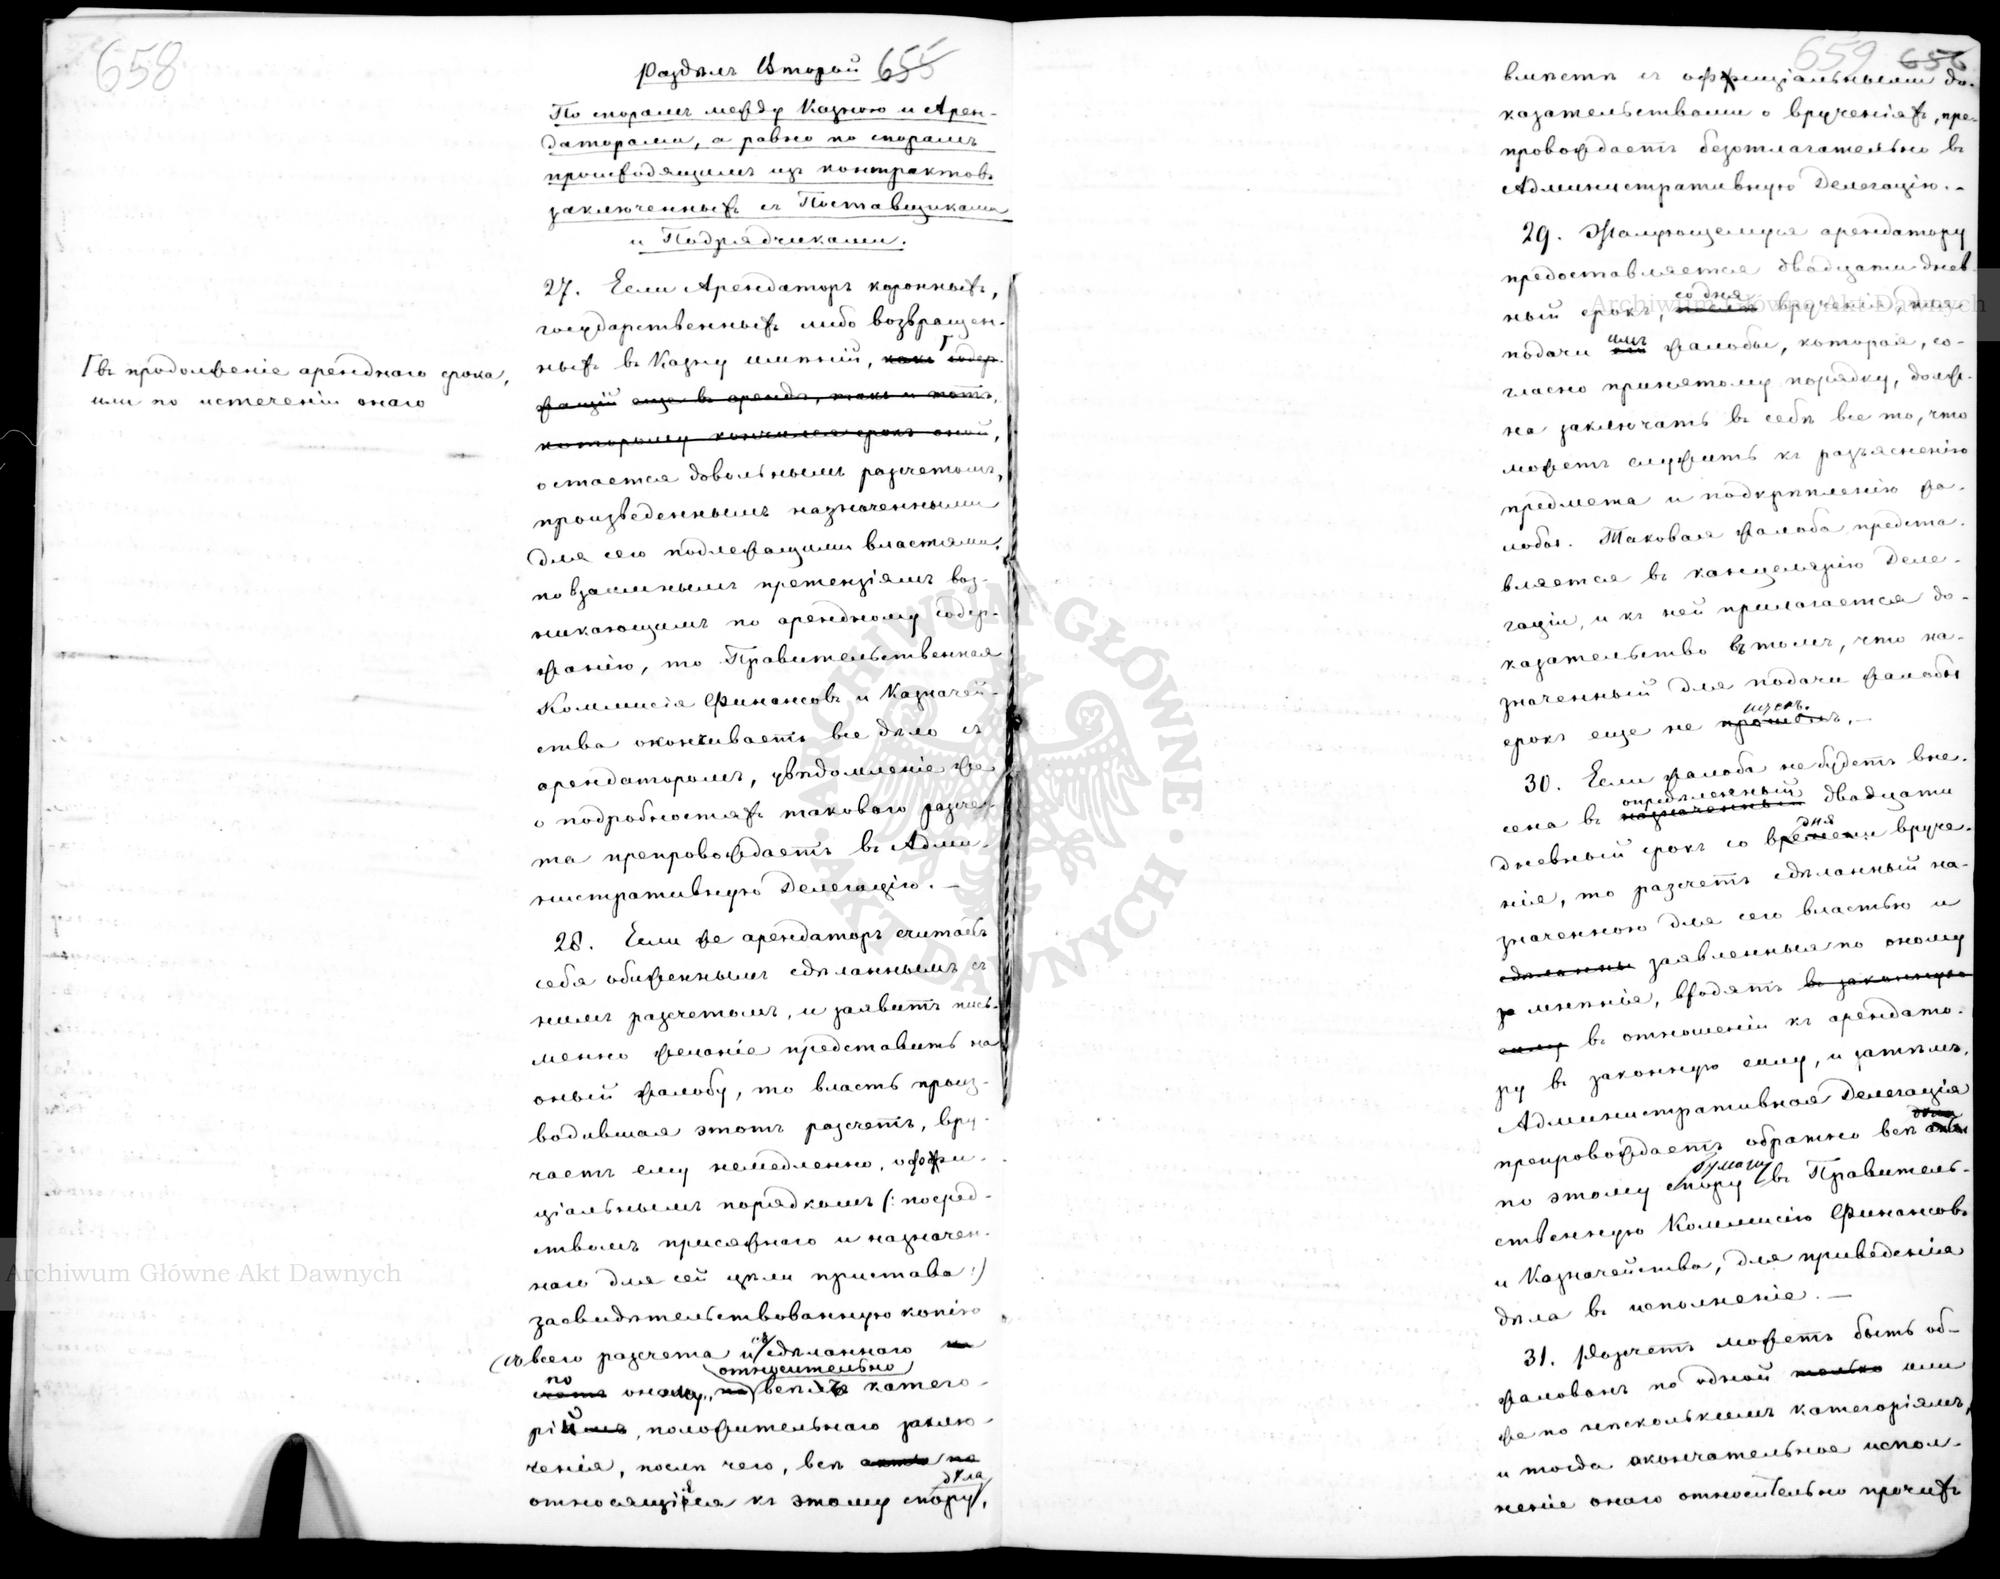 658
Раздѣлъ Второй 655
По спорамъ между Казною и Арен-
даторами, а равно по спорамъ
происходящимъ изъ контрактовъ
заключенныхъ съ Поставщиками
и Подрядчиками.
27. Если Арендаторъ коронныхъ,
государственныхъ либо возвращен-
ныхъ въ Казну имѣній, какъ содер-
жащій еще въ арендѣ, такъ и тотъ,
которому кончился срокъ оной,
Г въ продолженіе аренднаго срока,
или по истеченіи онаго
остается довольнымъ разсчетомъ,
произведеннымъ назначенными
для сего подлежащими властями,
по взаимнымъ претензіямъ воз-
никающимъ по арендному содер-
жанію, то Правительственная
Коммисія Финансовъ и Казначей-
ства окончиваетъ все дѣло съ
арендаторомъ, увѣдомленіе же
о подробностяхъ таковаго разсче-
та препровождаетъ въ Адми-
нистративную Делегацію. —
28. Если же арендаторъ считаетъ
себя обиженнымъ сдѣланнымъ съ
нимъ разсчетомъ, и заявитъ пись-
менно желаніе представить на
оный жалобу, то власть произ-
водившая этотъ разсчетъ, вру-
чаетъ ему немедленно, оффи-
ціальнымъ порядкомъ (: посред-
ствомъ присяжнаго и назначен-
наго для сей цѣли пристава :)
засвидѣтельствованную копію
съ всего разсчета и сдѣланнаго
относительно
по оному, всѣхъ катего-
рій, положительнаго заклю-
ченія, послѣ чего, всѣ
дѣла
относящіяся къ этому спору,
659 656
вмѣстѣ съ оффиціальными до-
казательствами о врученіяхъ, пре-
провождаетъ безотлагательно въ
Административную Делегацію. —
29. Жалующемуся арендатору
предоставляется двадцати днев-
со дня
ный срокъ, послѣ врученія, для
имъ
подачи жалобы, которая, со-
гласно принятому порядку, долж-
на заключать въ себѣ все то, что
можетъ служить къ разъясненію
предмета и подкрѣпленію жа-
лобы. Таковая жалоба предста-
вляется въ канцелярію Деле-
гаціи, и къ ней прилагается до-
казательство въ томъ, что на-
значенный для подачи жалобы
истекъ.
срокъ еще не прошелъ. —
30. Если жалоба не будетъ вне-
опредѣленный
сена въ назначенный двадцати
дня
дневный срокъ со времени вруче-
нія, то разсчетъ сдѣланный на-
значенною для сего властью и
сдѣланны заявленныя по оному
мнѣнія, входятъ въ законную
силу въ отношеніи къ арендато-
ру въ законную силу, и затѣмъ,
Административная Делегація
препровождаетъ обратно всѣ
бумаги
по этому спору въ Правитель-
ственную Коммисію Финансовъ
и Казначейства, для приведенія
дѣла въ исполненіе. —
31. Разсчетъ можетъ быть об-
жалованъ по одной только или
же по нѣсколькимъ категоріямъ,
и тогда окончательное испол-
неніе онаго относительно прочихъ
Archiwum Główne Akt Dawnych
Archiwum Główne Akt Dawnych
ARCHIWUM GŁÓWNE · AKT DAWNYCH ·